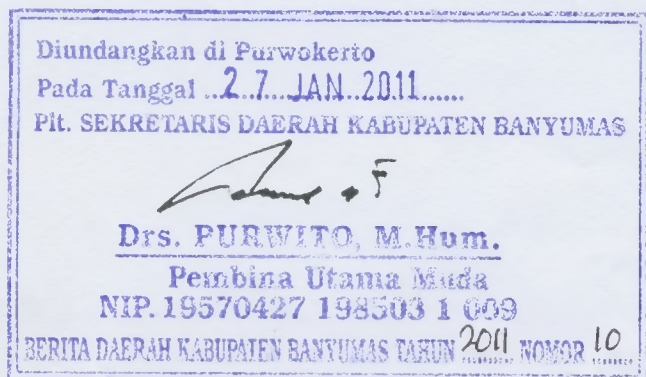 Diundangkan di Purwokerto
Pada Tanggal ...2.7...JAN..2011......
Plt. SEKRETARIS DAERAH KABUPATEN BANYUMAS
Drs. PURWITO, M.Hum.
Pembina Utama Muda
NIP. 19570427 198503 1 009
BERITA DAERAH KABUPATEN BANYUMAS TAHUN 2011 NOMOR 10